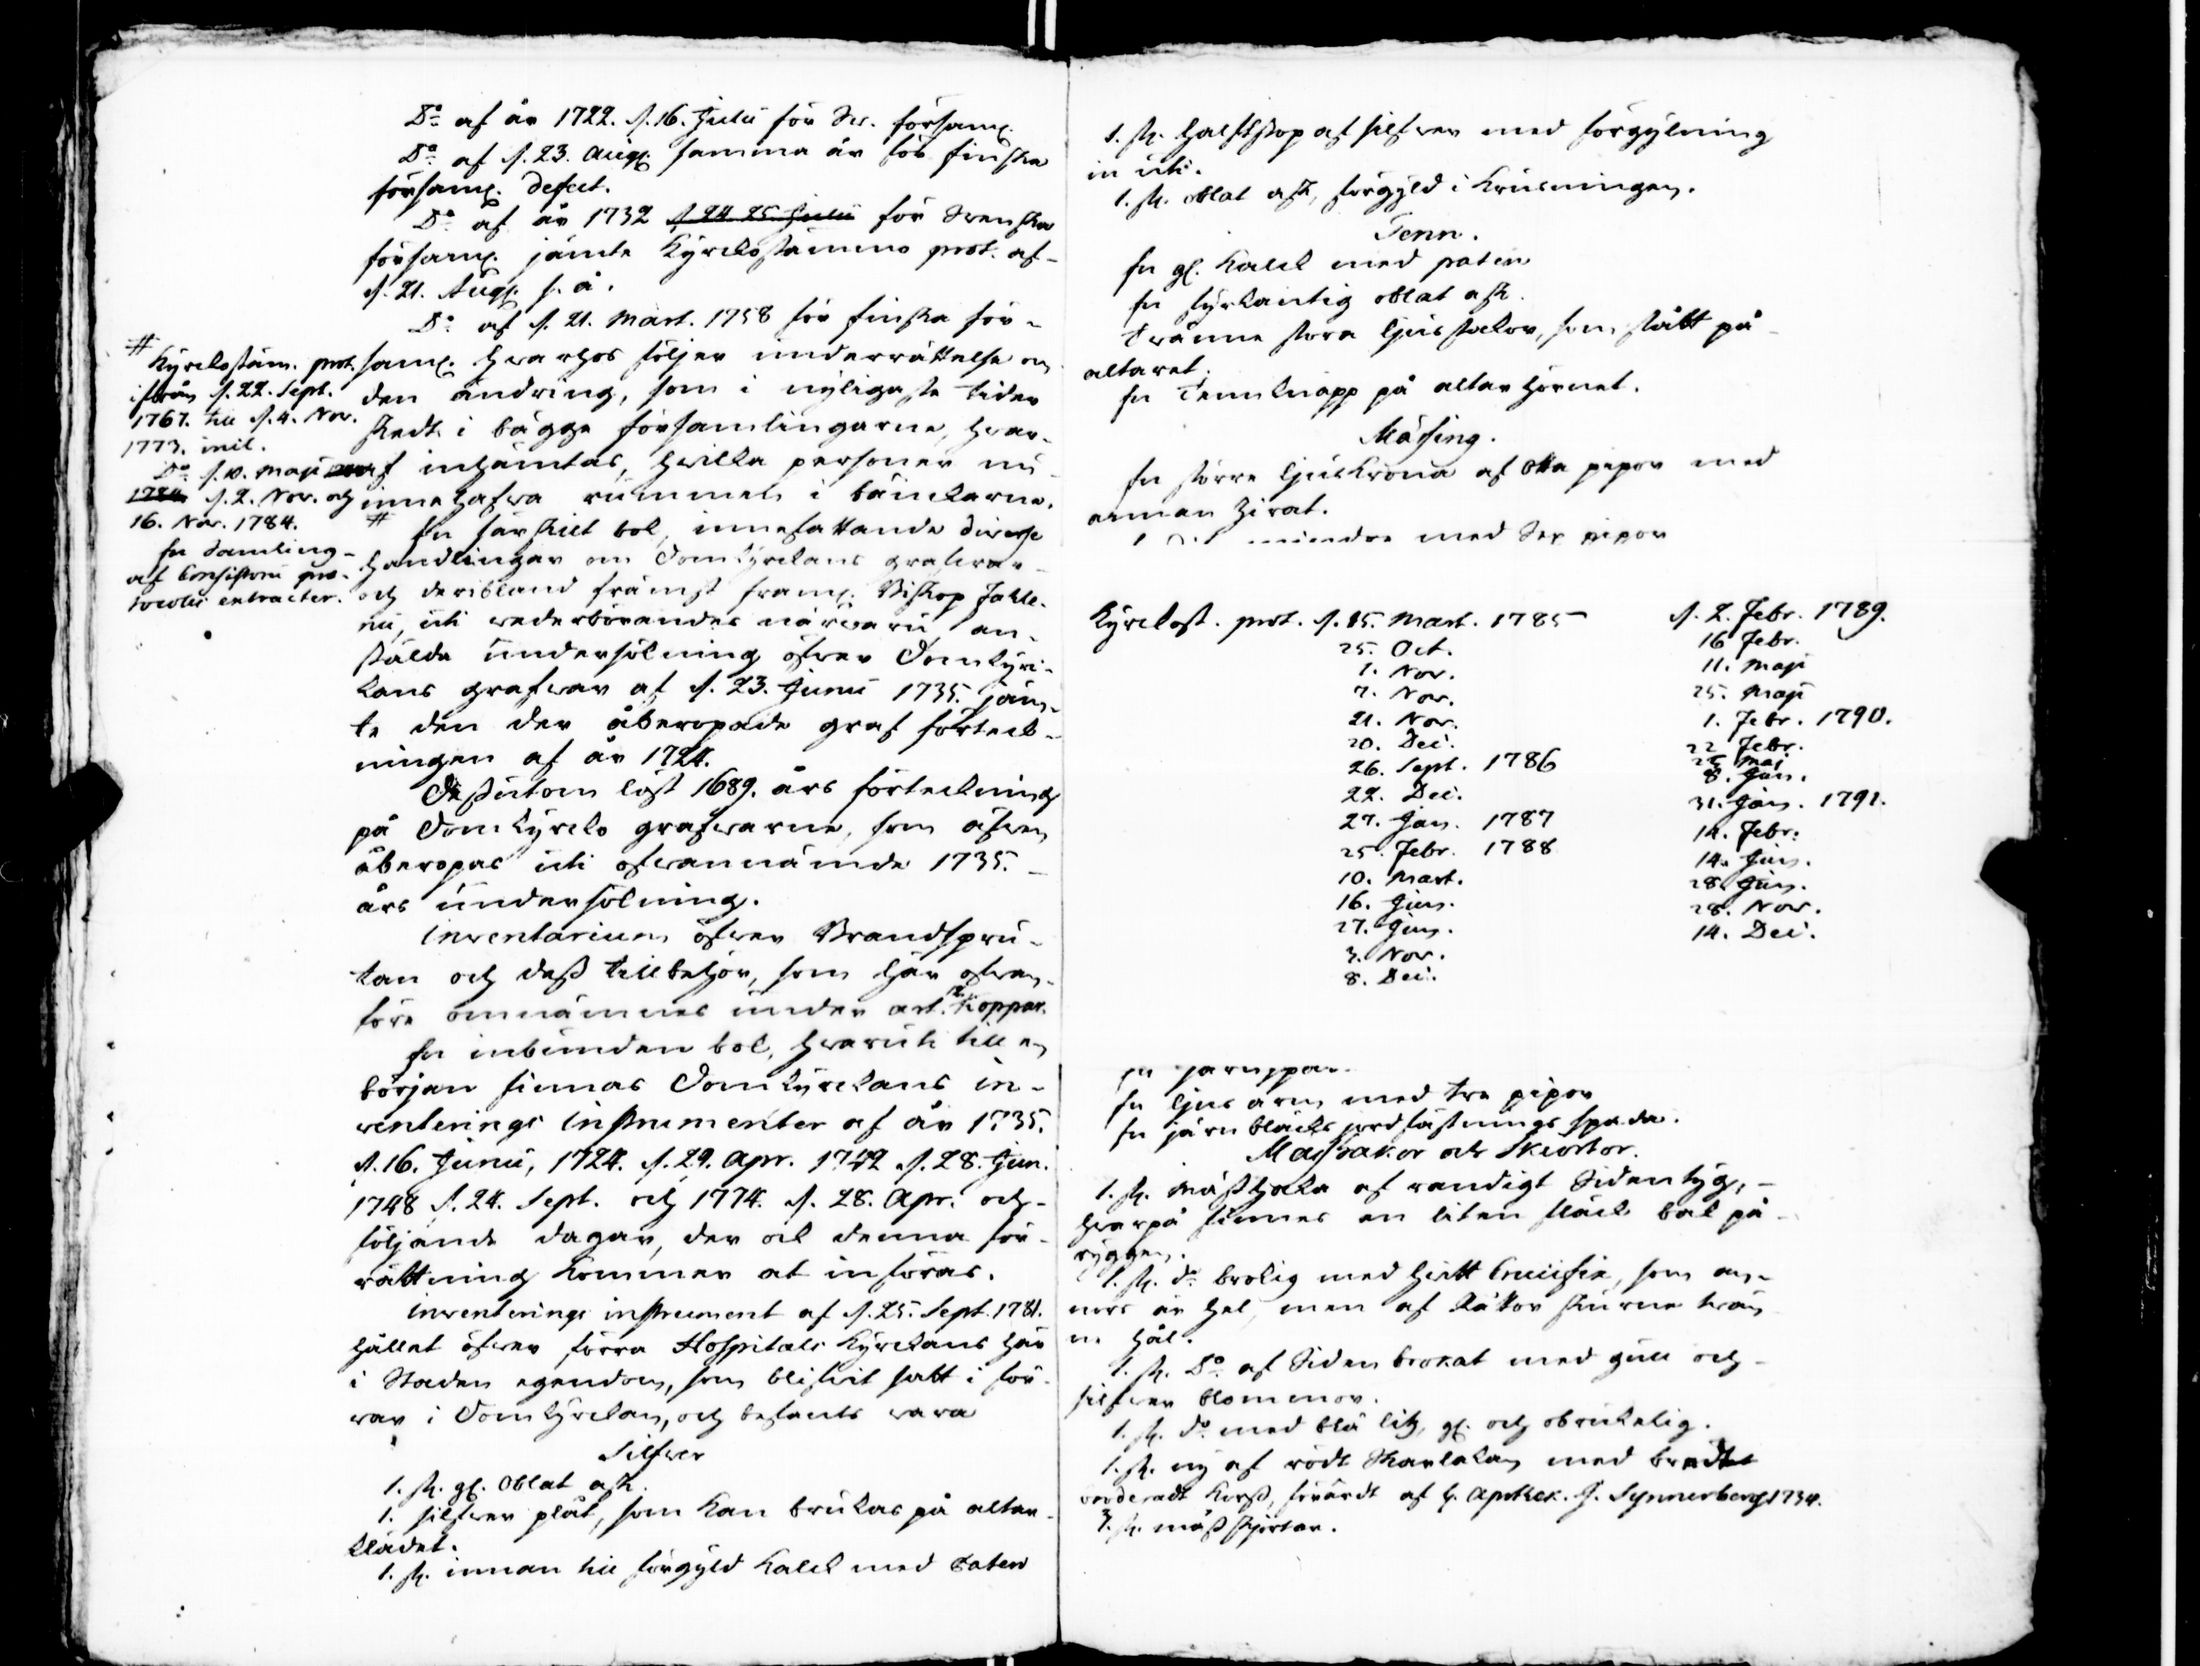 Do af år 1722. d. 16. Julii för Sv. församl.
Do af d. 23. Aug. samma år för finska
församl. defect.
Do af år 1732 d. 24. 25. Julii för Svenska
församl. jämte Kyrckostämmo prot. af
d. 21. Aug. s. å.
Do af d. 21. Mart. 1758 för finska för-
saml. hvarhos följer underrättelse om
den ändring, som i nyligaste tider
skedt i bägge församlingarne, hvar-
af inhämtas, hvilka personer nu
innehafva rummen i bänckarne.
# En särskilt bok, innefattande diverse
handlingar om Domkyrckans grafvar
och deribland främst framl. Biskop Fahle-
nii, uti vederbörandes närvaru an-
stälde undersökning öfver Domkyrc-
kans grafvar af d. 23. Junii 1735. jäm-
te den der åberopade graf förteck-
ningen af år 1724.
Dessutom löst 1689. års förteckning
på Domkyrcko grafvarne, som äfven
åberopas uti ofvannämde 1735.
års undersökning.
Inventarium öfver Brandspru-
tan och dess tillbehör, som här ofvan-
före omnämnes under art. Koppar.
En inbunden bok, hvaruti till en
början finnas Domkyrckans in-
venterings instrumenter af år 1735.
d. 16. Junii, 1724. d. 29. Apr. 1742 d. 28. Jun.
1748 d. 24. Sept. och 1774. d. 28. Apr. och
följande dagar, der ock denna för-
rättning kommer at införas.
Inventerings instrument af d. 25. Sept. 1781.
hållet öfver förra Hospitals Kyrckans här
i Staden egendom, som blifvit satt i för-
var i Domkyrckan, och befants vara
Silfver
1. st. gl. Oblat ask.
1. silfver plåt, som kan brukas på altar-
klädet.
1. st. innan till förgyld Kalck med Paten
# Kyrckostäm. prot.
ifrån d. 22. Sept.
1767. till d. 4. Nov.
1773. incl.
Do d. 10. Maji
1784 d. 2. Nov. och
16. Nov. 1784.
En Samling
af Consistorii pro-
tocolls extracter.
1. st. halfstop af silfver med förgylning
in uti.
1. st. oblat ask, förgyld i Krusningen.
Tenn.
En gl. Kalck med paten
En fyrkantig oblat ask.
Tvänne stora ljusstakar, som stått på
altaret.
En Tennknapp på altarhörnet.
Mässing.
En större ljuskrona af Otta pipor med
annan Zirat.
1 Dito mindre med Sex pipor
Kyrckost. prot. d. 15. Mart. 1785
25. Oct.
1. Nov.
7. Nov.
21. Nov.
20. Dec.
26. Sept. 1786
22. Dec.
27. Jan. 1787
25. Febr. 1788
10. Mart.
16. Jun.
27. Jun.
3. Nov.
8. Dec.
d. 2. Febr. 1789.
16 Febr.
11. Maji
25. Maji
1. Febr. 1790.
22 Febr.
25 Maj
8. Jun.
31. Jan. 1791.
14. Febr.
14. Jun.
28. Jun.
28. Nov.
14. Dec.
En ljus arm med tre pipor
En järn bläcks jordfästnings spade.
Messhakor och Skiortor.
1. st. Mässhaka af randigt Siden tyg,
hvarpå finnes en liten fläck bak på
ryggen.
1. st. do brokig med hvitt Crucifix, som an-
nors är hel, men af Råttor skurne trän-
ne hål.
1. st. Do af Siden brokat med gull och
silfver blommor.
1. st. do med blå litz, gl. och obrukelig.
1. st. ny af rödt Skarlakan med bredt
broderadt Korss, förärdt af H. Apothek. J. Synnerberg 1734.
3. st. mässkjortor.